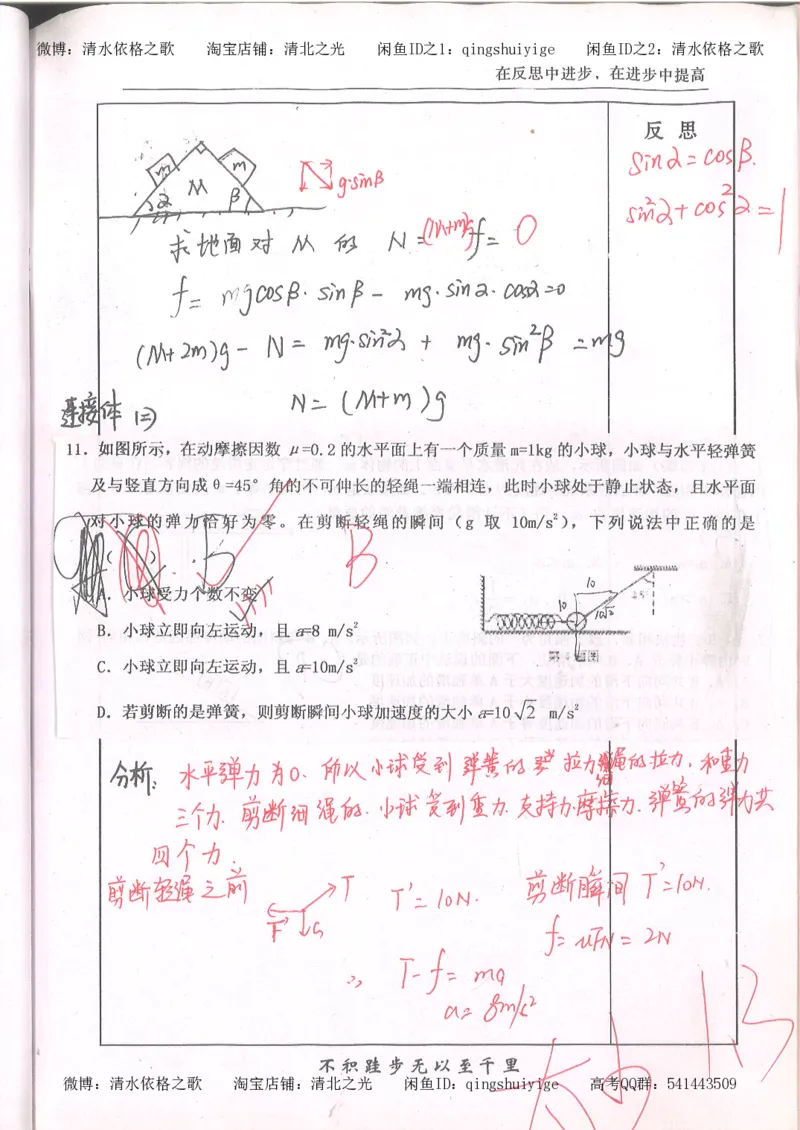 微博：清水依格之歌 淘宝店铺：清北之光 闲鱼ID之1：qingshuiyige 闲鱼ID之2：清水依格之歌
在反思中进步，在进步中提高
反 思
sinα=cosβ.
sin²α+cos²α=1
m m
M
α β
g·sinβ
求地面对 M 的 N=(M+m)g f= 0
f= mgcosβ·sinβ- mg·sinα·cosα=0
(M+2m)g- N= mg·sin²α + mg·sin²β =mg
N= (M+m)g
连接体 (二)
11. 如图所示，在动摩擦因数 μ=0.2 的水平面上有一个质量 m=1kg 的小球，小球与水平轻弹簧
及与竖直方向成 θ=45° 角的不可伸长的轻绳一端相连，此时小球处于静止状态，且水平面
对小球的弹力恰好为零。在剪断轻绳的瞬间（g 取 10m/s²），下列说法中正确的是
（ ） B B
A. 小球受力个数不变
B. 小球立即向左运动，且 a=8 m/s²
C. 小球立即向左运动，且 a=10m/s²
D. 若剪断的是弹簧，则剪断瞬间小球加速度的大小 a=10√2 m/s²
10
10 10√2 45°
分析: 水平弹力为0. 所以小球受到弹簧的 拉力 绳的拉力，和重力
三个力. 剪断细绳的. 小球受到重力.支持力.摩擦力.弹簧的弹力共
四个力.
剪断轻绳之前 T T'=10N. 剪断瞬间 T'=10N.
F G
f=μFN=2N
∴ T-f=ma
a=8m/s²
不积跬步无以至千里
微博：清水依格之歌 淘宝店铺：清北之光 闲鱼ID：qingshuiyige 高考QQ群：541443509